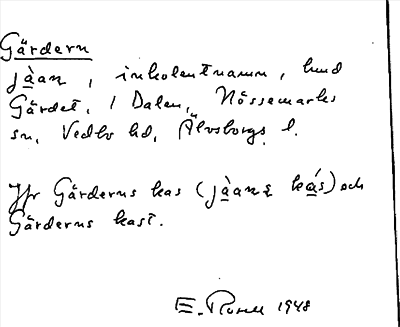 Gärdern
jàan, inkolentnamn, hmd
Gärdet, i Dalen, Nössemarks
sn, Vedbo hd, Älvsborgs l.
Jfr Gärderns kas (jàanς kás) och
Gärderns kast.
E. Rosell 1948